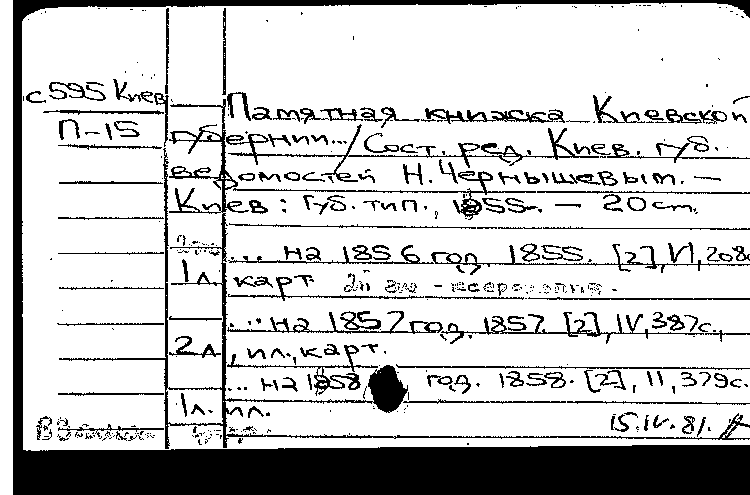 с595 Киев
П-15
Памятная книжка Киевской
губернии.../Сост. ред. Киев. губ.
ведомостей Н. Чернышевым. —
Киев: Губ. тип., 1855-. — 20 cm.
... на 1856 год. 1855. [2], VI, 208с
1л. карт. 2й экз -
... на 1857 год. 1857. [2], IV, 387с.,
2л, ил., карт.
... на 1858 год. 1858. [2], II, 379с.
1л. ил.
15.IV.81.